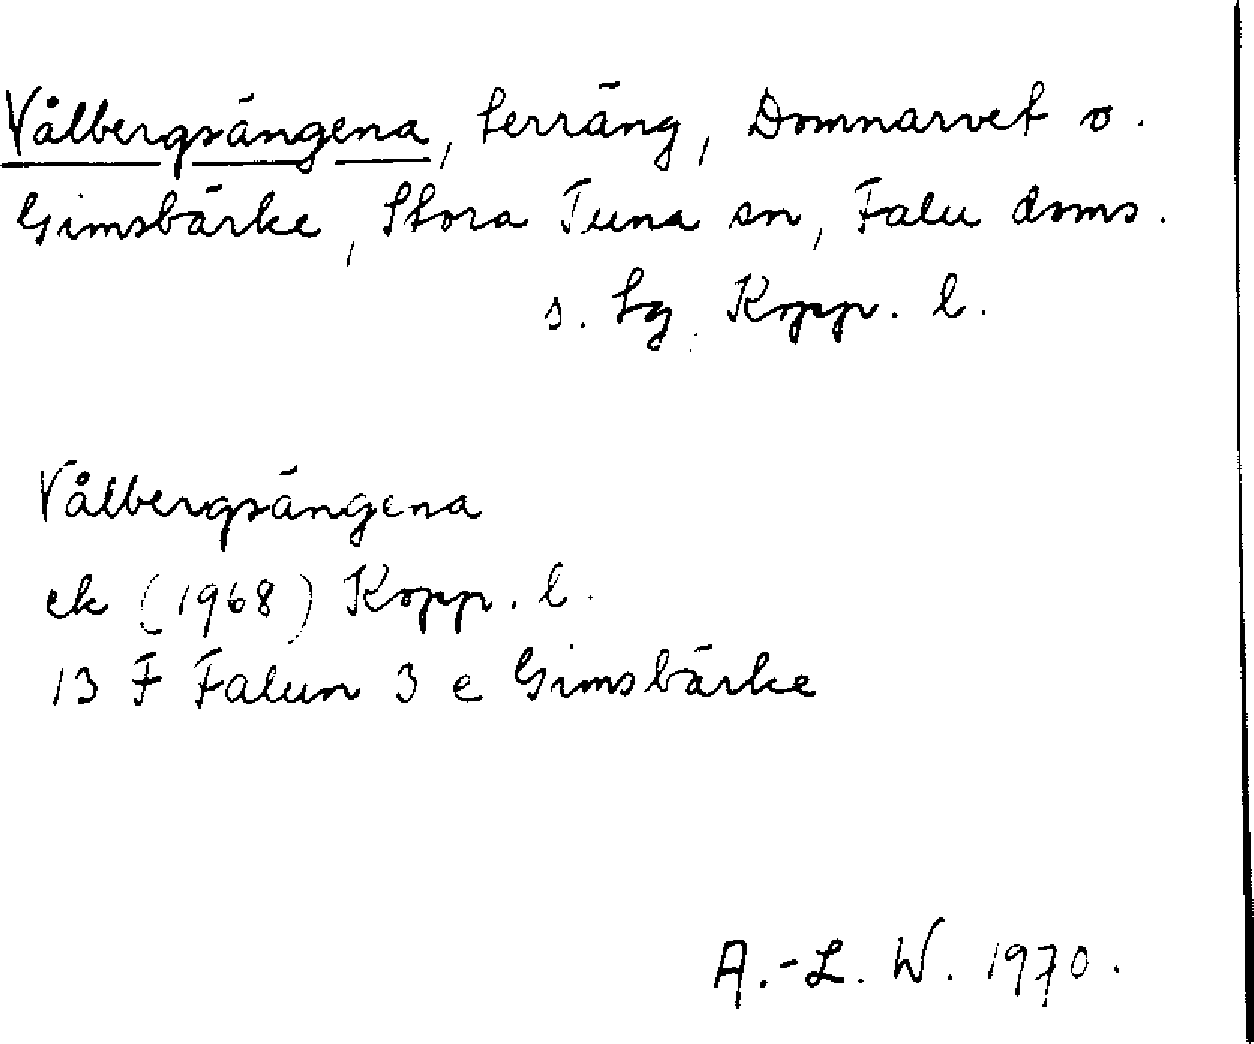 Vålbergsängena, terräng, Domnarvet o.
Gimsbärke, Stora Tuna sn, Falu doms.
s. tg. Kopp. l.
Vålbergsängena
ek (1968) Kopp. l.
13 F Falun 3 e Gimsbärke
A.-L. W. 1970.